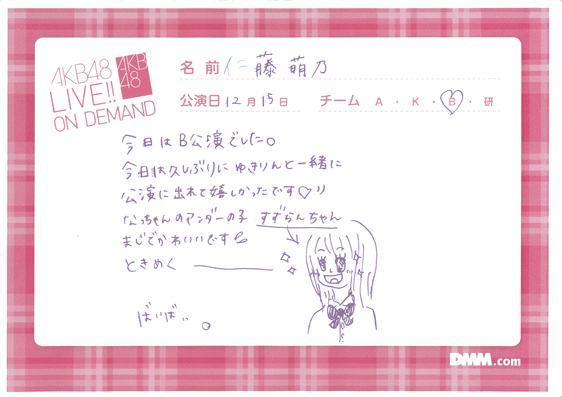 AKB48
LIVE!!
ON DEMAND
AKB
48
名 前 仁藤 萌乃
公演日 12月 15日 チーム A ・ K ・ B ・ 研
今日はB公演でした。
今日は久しぶりにゆきりんと一緒に
公演に出れて嬉しかったです♡
なっちゃんのアンダーの子 すずらんちゃん
まじでかわいいです
ときめく ―――
ばいばぃ 。
DMM.com